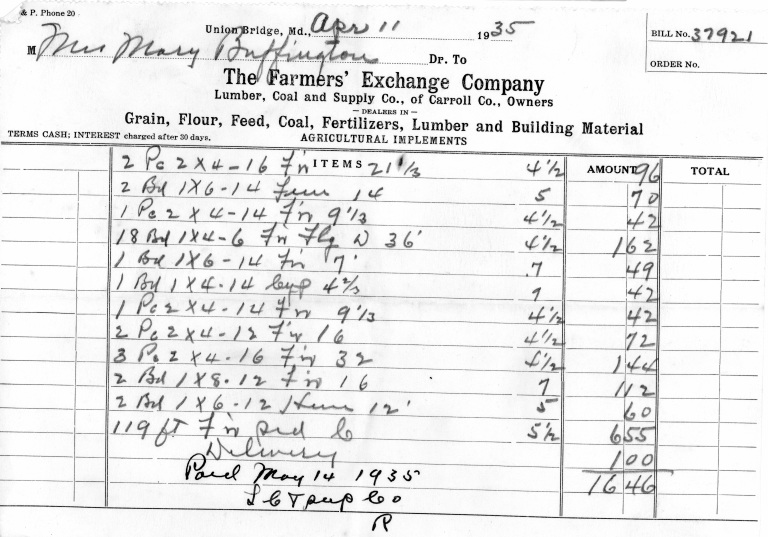 & P. Phone 20
Union Bridge, Md., Apr 11 1935
BILL No. 37921
M Mrs Mary Buffington Dr. To
ORDER No.
The Farmers' Exchange Company
Lumber, Coal and Supply Co., of Carroll Co., Owners
— DEALERS IN —
Grain, Flour, Feed, Coal, Fertilizers, Lumber and Building Material
TERMS CASH; INTEREST charged after 30 days. AGRICULTURAL IMPLEMENTS
ITEMS AMOUNT TOTAL
2 Pc 2 x 4 - 16 Fir 21 1/3 4 1/2 96
2 Bd 1 x 6 - 14 14 5 70
1 Pc 2 x 4 - 14 Fir 9 1/3 4 1/2 42
18 Bd 1 x 4 - 6 Fir Flg D 36' 4 1/2 1 62
1 Bd 1 x 6 - 14 Fir 7' 7 49
1 Bd 1 x 4 - 14 Cyp 4 2/3 9 42
1 Pc 2 x 4 - 14 Fir 9 1/3 4 1/2 42
2 Pc 2 x 4 - 12 Fir 16 4 1/2 72
3 Pc 2 x 4 - 16 Fir 32 4 1/2 1 44
2 Bd 1 x 8 - 12 Fir 16 7 1 12
2 Bd 1 x 6 - 12 12' 5 60
119 ft Fir 5 1/2 6 55
Delivery 1 00
Paid May 14 1935 16 46
L C & Sup Co
R